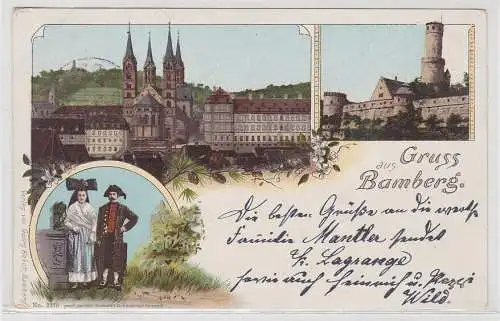 Gruss
aus
Bamberg.
Die besten Grüße an die werte
Familie Mantler sendet
Lagrange
sowie auch Heinrich u.
Wild.
No. 2276